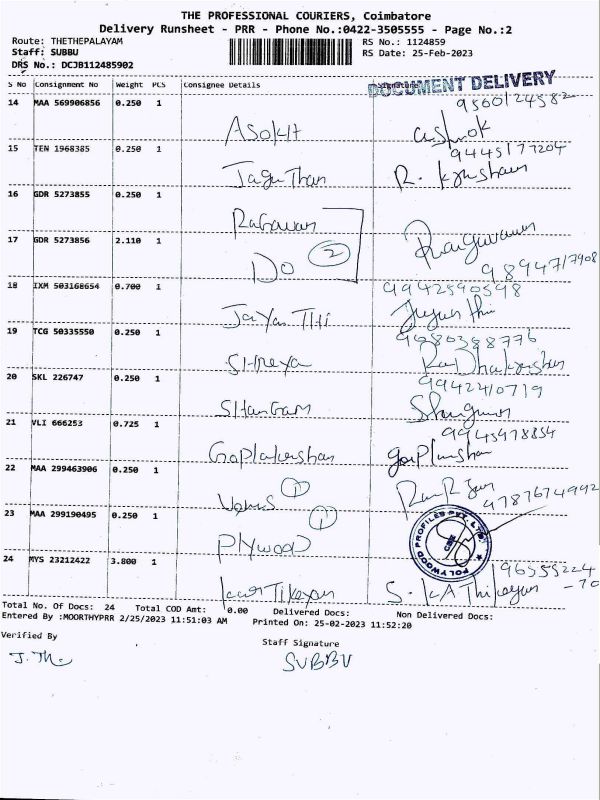 THE PROFESSIONAL COURIERS, Coimbatore
Delivery Runsheet - PRR - Phone No.:0422-3505555 - Page No.:2
Route: THETHEPALAYAM RS No.: 1124859
Staff: SUBBU RS Date: 25-Feb-2023
DRS No.: DCJB112485902
S No Consignment No Weight PCS Consignee Details Signature
DOCUMENT DELIVERY
14 MAA 569906856 0.250 1 9560124582
Asokit ashok
15 TEN 1968385 0.250 1 9445177204
JaguThan R.
16 GDR 5273855 0.250 1
Ragavan
17 GDR 5273856 2.110 1
Do 2
9894717908
18 IXM 503168654 0.700 1 9942590598
19 TCG 50335550 0.250 1 9980388776
SHreya
20 SKL 226747 0.250 1 9942210719
21 VLI 666253 0.725 1 9943978854
22 MAA 299463906 0.250 1
1 9787674992
23 MAA 299190495 0.250 1
1
Plywood
POLYWOOD PROFILES PVT. LTD. CBE
24 MYS 23212422 3.800 1 96555224
-70
Total No. Of Docs: 24 Total COD Amt: 0.00 Delivered Docs: Non Delivered Docs:
Entered By :MOORTHYPRR 2/25/2023 11:51:03 AM Printed On: 25-02-2023 11:52:20
Verified By Staff Signature
SUBBU